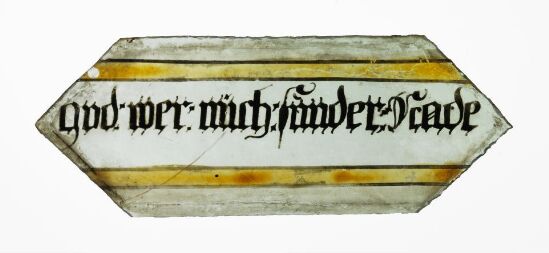 gvd·wer·mich:sunder:Scade